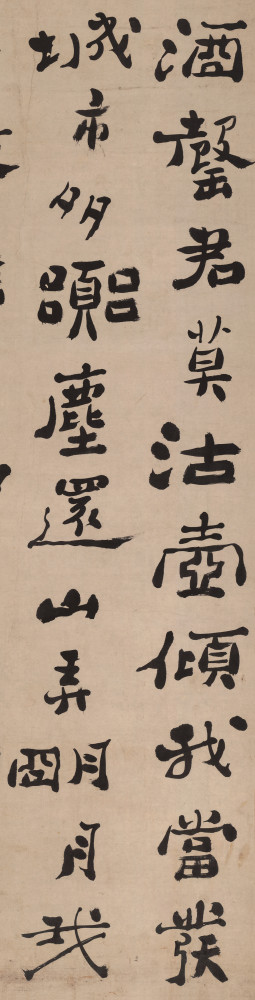 酒罄君莫沽壺傾我當發
城市多囂塵還山弄明月我